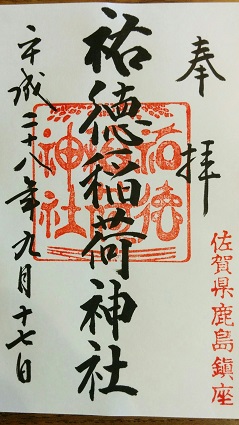 奉拝
佐賀県鹿島鎮座
祐徳稲荷神社
祐徳稲荷神社
平成二十八年九月十七日